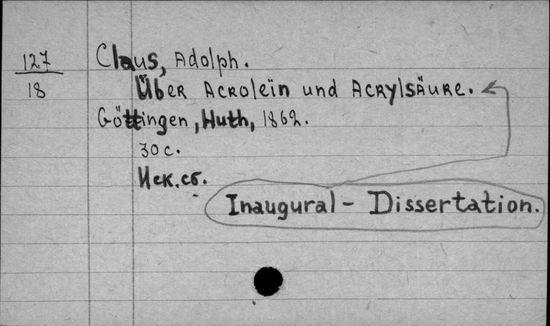 127
18
Claus, Adolph.
Über Acroleïn und Acrylsäure.
Göttingen, Huth, 1862.
30 с.
Иск. сб.
Inaugural - Dissertation.